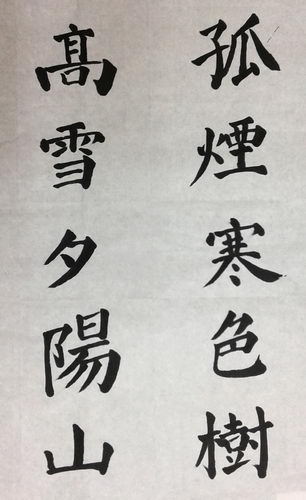 孤煙寒色樹
髙雪夕陽山